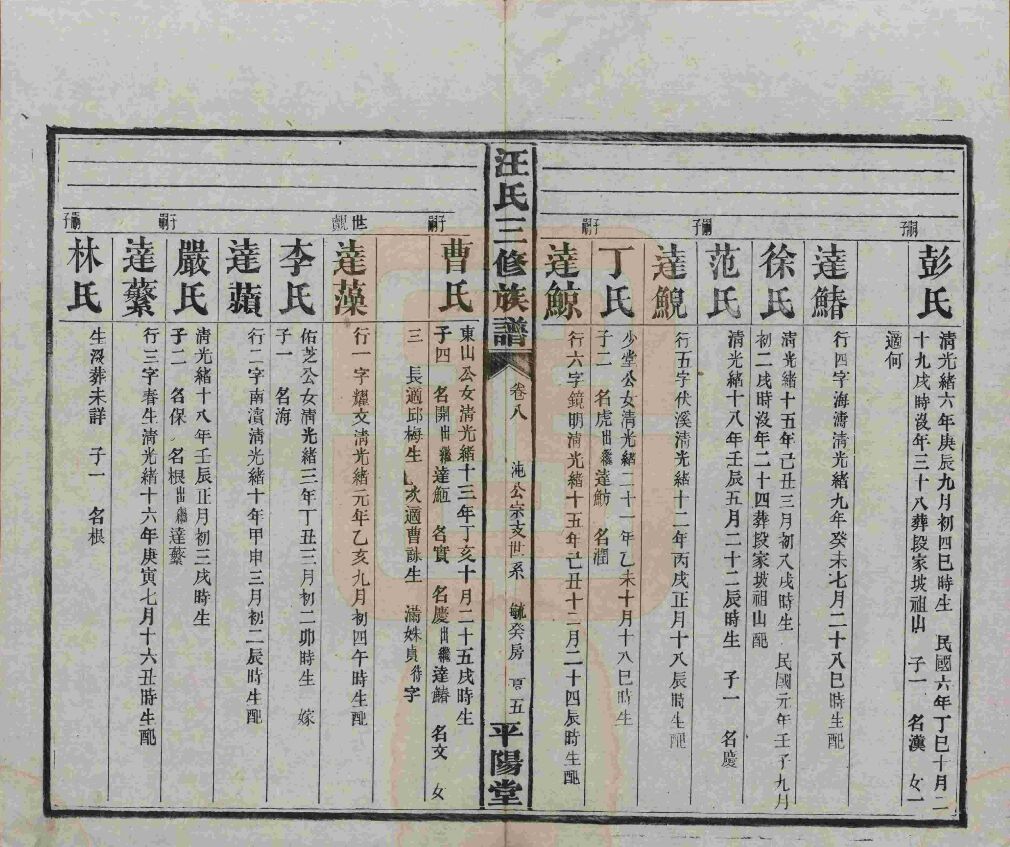 嗣子
彭氏
清光緒六年庚辰九月初四巳時生　民國六年丁巳十月二
十九戌時沒年三十八葬段家坡祖山　子一　名漢　女一
適何
達鰆
行四字海濤清光緒九年癸未七月二十八巳時生配
徐氏
清光緒十五年己丑三月初八戌時生　民國元年壬子九月
初二戌時沒年二十四葬段家坡祖山配
嗣子
范氏
清光緒十八年壬辰五月二十二辰時生　子一　名慶
達鯢
行五字伏溪清光緒十二年丙戌正月十八辰時生配
嗣子
丁氏
少堂公女清光緒二十一年乙未十月十八巳時生
子二　名虎出繼達魴　名潤
達鯨
行六字鏡明清光緒十五年己丑十二月二十四辰時生配
汪氏三修族譜
卷八
沌公宗支世系
毓癸房
五
平陽堂
嗣子
曹氏
東山公女清光緒十三年丁亥十月二十五戌時生
子四　名開出繼達　名實　名慶出繼達鰆　名文　女
三　長適邱梅生　次適曹詠生　滿姝貞待字
世覬
達藻
行一字耀文清光緒元年乙亥九月初四午時生配
李氏
佑芝公女清光緒三年丁丑三月初二卯時生　嫁
子一　名海
達蘋
行二字南濱清光緒十年甲申三月初二辰時生配
嗣子
嚴氏
清光緒十八年壬辰正月初三戌時生
子二　名保　名根出繼達蘩
達蘩
行三字春生清光緒十六年庚寅七月十六丑時生配
嗣子
林氏
生沒葬未詳　子一　名根